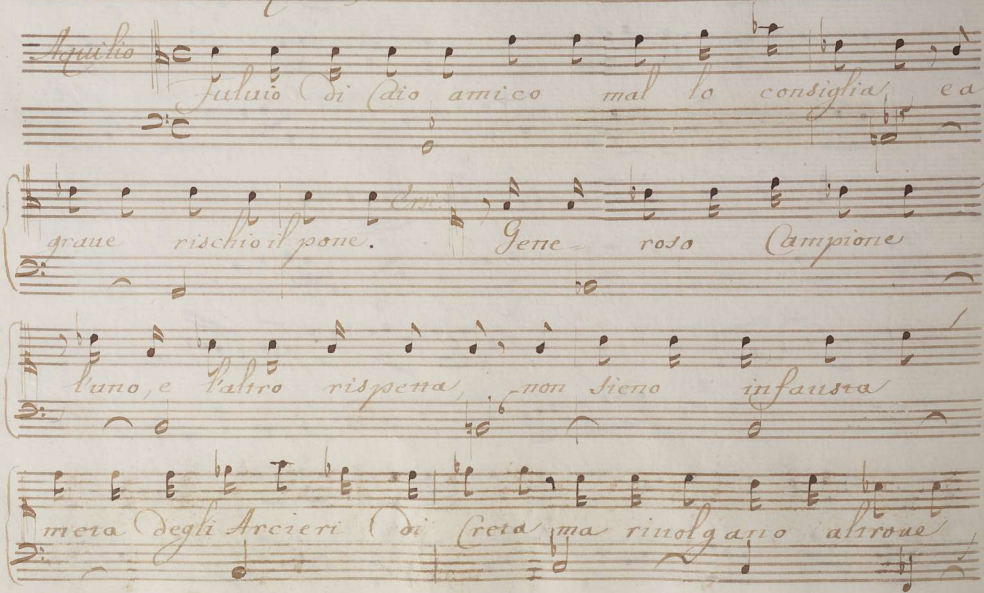 Aquilio
Fuluio di Caio amico mal lo consiglia e a
graue rischio il pone. Gene= roso Campione
l'uno, e l'altro rispetta, non sieno infausta
meta degli Arcieri di Creta ma riuolgano altroue